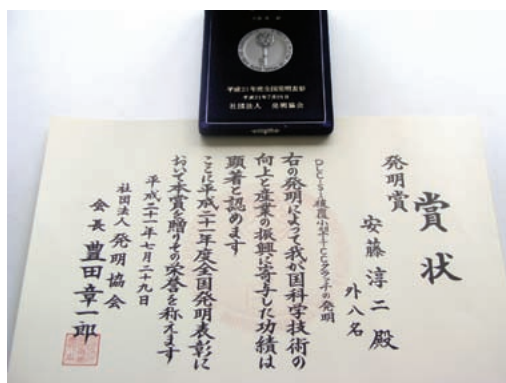 平成21年度全国発明表彰
平成21年7月29日
社団法人 発明協会
賞状
発明賞
安藤淳二殿
外八名
の発明
右の発明によって我が国科学技術の
向上と産業の振興に寄与した功績は
顕著と認めます
ここに平成二十一年度全国発明表彰に
おいて本賞を贈りその栄誉を称えます
平成二十一年七月二十九日
社団法人発明協会
会長 豊田章一郎